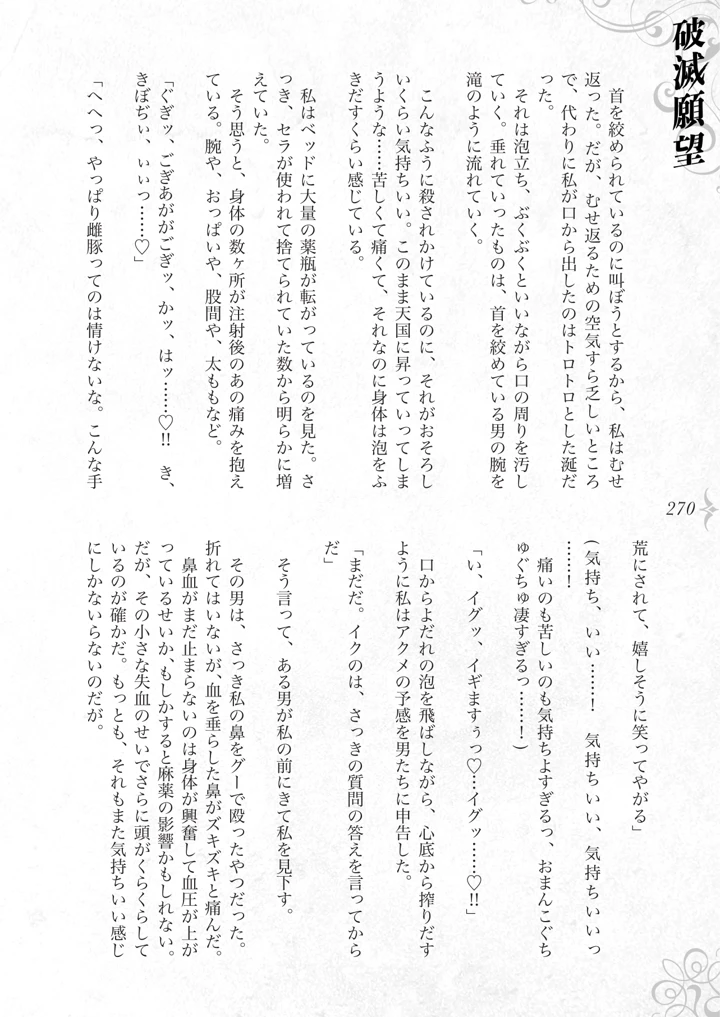 破滅願望
首を絞められているのに叫ぼうとするから、私はむせ
返った。だが、むせ返るための空気すら乏しいところ
で、代わりに私が口から出したのはトロトロとした涎だ
った。
それは泡立ち、ぶくぶくといいながら口の周りを汚し
ていく。垂れていったものは、首を絞めている男の腕を
滝のように流れていく。
こんなふうに殺されかけているのに、それがおそろし
いくらい気持ちいい。このまま天国に昇っていってしま
うような……苦しくて痛くて、それなのに身体は泡をふ
きだすくらい感じている。
私はベッドに大量の薬瓶が転がっているのを見た。さ
っき、セラが使われて捨てられていた数から明らかに増
えていた。
そう思うと、身体の数ヶ所が注射後のあの痛みを抱え
ている。腕や、おっぱいや、股間や、太ももなど。
「ぐぎッ、ごぎあががごぎッ、かッ、はッ……♡!!　き、
きぼぢぃ、ぃぃっ……♡」
「へへっ、やっぱり雌豚ってのは情けないな。こんな手
270
荒にされて、嬉しそうに笑ってやがる」
(気持ち、いい……！　気持ちいい、気持ちいいっ
……！
痛いのも苦しいのも気持ちよすぎるっ、おまんこぐち
ゅぐちゅ凄すぎるっ……！)
「い、イグッ、イギますぅっ♡…イグッ……♡!!」
口からよだれの泡を飛ばしながら、心底から搾りだす
ように私はアクメの予感を男たちに申告した。
「まだだ。イクのは、さっきの質問の答えを言ってから
だ」
そう言って、ある男が私の前にきて私を見下す。
その男は、さっき私の鼻をグーで殴ったやつだった。
折れてはいないが、血を垂らした鼻がズキズキと痛んだ。
鼻血がまだ止まらないのは身体が興奮して血圧が上が
っているせいか、もしかすると麻薬の影響かもしれない。
だが、その小さな失血のせいでさらに頭がくらくらして
いるのが確かだ。もっとも、それもまた気持ちいい感じ
にしかならないのだが。